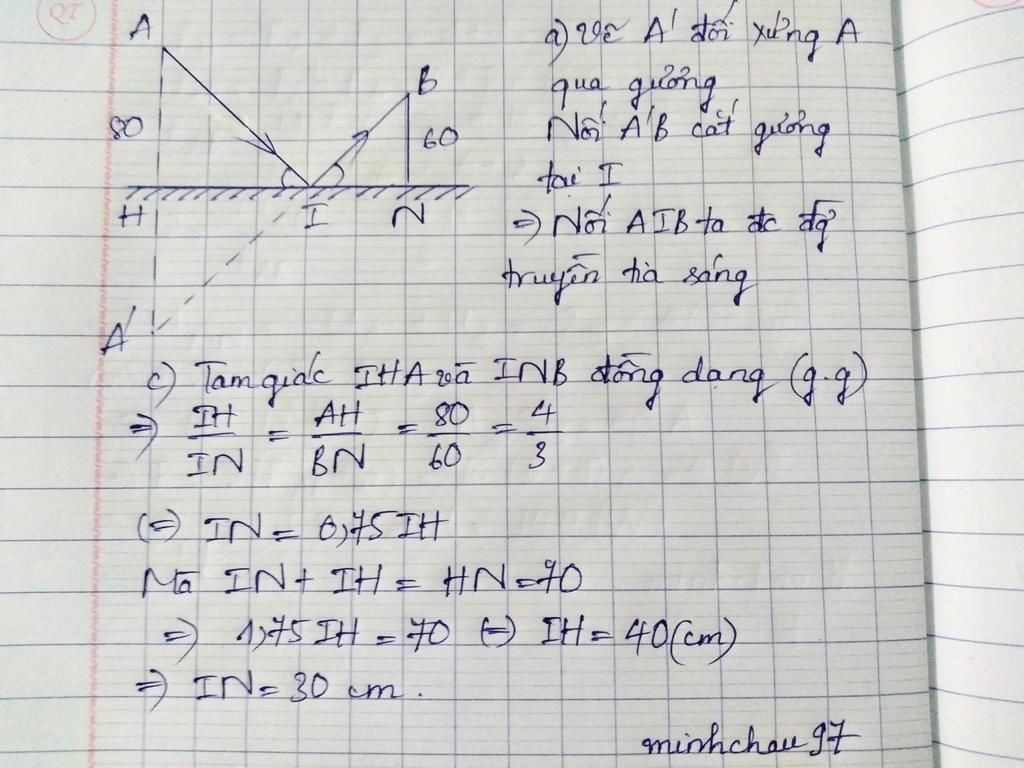 QT
A
80
B
60
H
I
N
A'
a) Vẽ A' đối xứng A
qua gương
Nối A'B cắt gương
tại I
=> Nối AIB ta đc đg
truyền tia sáng
c) Tam giác IHA và INB đồng dạng (g.g)
=> IH/IN = AH/BN = 80/60 = 4/3
(=) IN = 0,75 IH
Mà IN + IH = HN = 70
=> 1,75 IH = 70 (=) IH = 40 (cm)
=> IN = 30 cm.
minhchau97